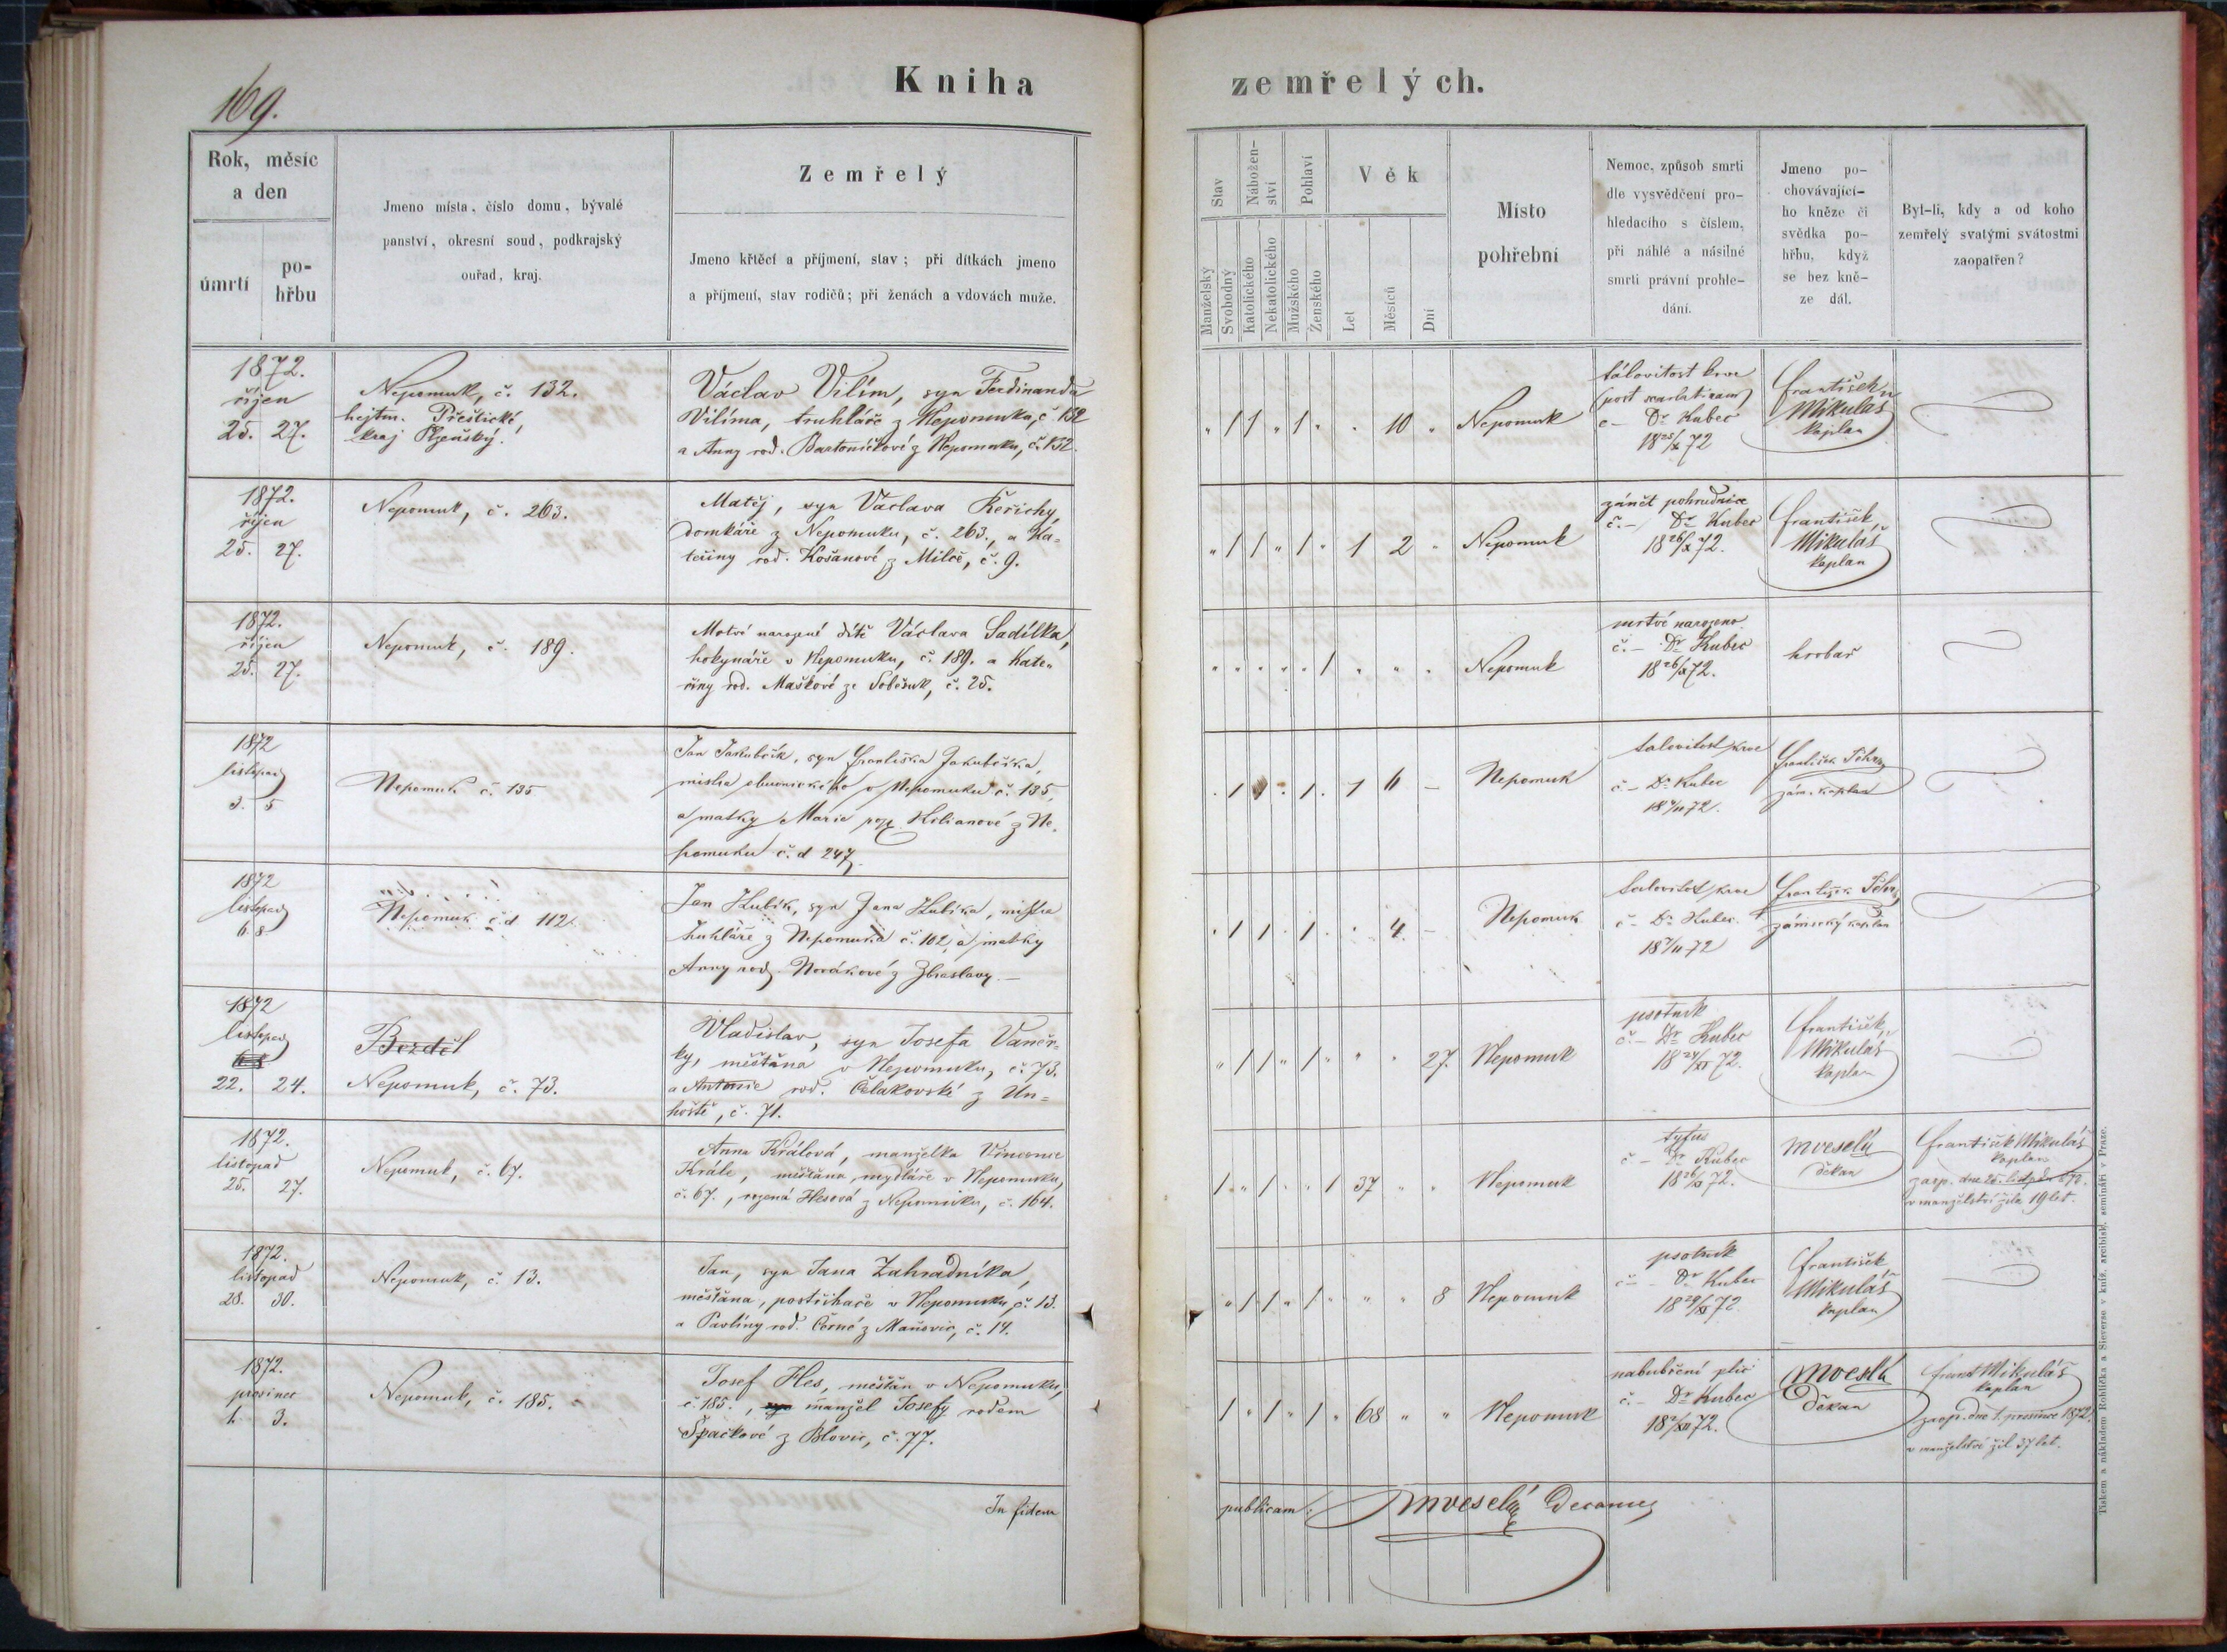 169.
Kniha
zemřelých.
Rok, měsíc
a den
úmrtí
po-
hřbu
Jmeno místa, číslo domu, bývalé
panství, okresní soud, podkrajský
ouřad, kraj.
Zemřelý
Jmeno křtěcí a příjmení, stav; při dítkách jmeno
a příjmení, stav rodičů; při ženách a vdovách muže.
Stav
Manželský
Svobodný
Nábožen-
ství
Katolického
Nekatolického
Pohlaví
Mužského
Ženského
Věk
Let
Měsíců
Dní
Místo
pohřební
Nemoc, způsob smrti
dle vysvědčení pro-
hledacího s číslem,
při náhlé a násilné
smrti právní prohle-
dání.
Jmeno po-
chovávající-
ho kněze či
svědka po-
hřbu, když
se bez kně-
ze dál.
Byl-li, kdy a od koho
zemřelý svatými svátostmi
zaopatřen?
1872.
říjen
25. 27.
Nepomuk, č. 132.
hejtm. Přeštické,
kraj Plzeňský.
Václav Vilím, syn Ferdinanda
Vilíma, truhláře z Nepomuku, č. 132
a Anny rod. Bartoníčkové z Nepomuku, č. 132.
" 1 1 " 1 " " 10 "
Nepomuk
(post scarlatinam)
č – Dr Kubec
18 25/X 72
František
Mikuláš
kaplan
1872.
říjen
25. 27.
Nepomuk, č. 263.
Matěj, syn Václava Keřichy
domkáře z Nepomuku, č. 263., a Ka-
teřiny rod. Košanové z Milče, č. 9.
" 1 1 " 1 " 1 2 "
Nepomuk
zánět pohrudnice
č. – Dr Kubec
18 26/X 72.
František
Mikuláš
kaplan
1872.
říjen
25. 27.
Nepomuk, č. 189.
Mrtvě narozené dítě Václava Sadílka,
hokynáře v Nepomuku, č. 189. a Kate-
řiny rod. Maškové ze Soběsuk, č. 25.
" " " " " 1 " " "
Nepomuk
mrtvě narozeno
č. – Dr Kubec
18 26/X 72.
hrobař
1872
listopad
3. 5
Nepomuk č. 135
Jan Jakubčík, syn Františka Jakubčíka,
mistra obuvnického v Nepomuku č. 135,
a matky Marie roz. Kilianové z Ne-
pomuku č. d 247.
. 1 1 . 1 . 1 6 –
Nepomuk
č – Dr Kubec
18 4/11 72.
František
zám. kaplan
1872
listopad
6. 8
Nepomuk č. d 112.
Jan Hubík, syn Jana Hubíka, mistra
truhláře z Nepomuka č. 102, a matky
Anny rod. Novákové z Zbraslavy. –
. 1 1 . 1 . . 4. –
Nepomuk
č – Dr Kubec.
18 7/11 72
František
zámecký kaplan
1872
listopad
22. 24.
Bezděl
Nepomuk, č. 73.
Vladislav, syn Josefa Vaněč-
ky, měšťana v Nepomuku, č. 73.
a Antonie rod. Čelakovské z Un-
hoště, č. 71.
" 1 1 " 1 " " " 27.
Nepomuk
psotník
č. – Dr Kubec
18 24/XI 72.
František
Mikuláš
kaplan
1872.
listopad
25. 27.
Nepomuk, č. 67.
Anna Králová, manželka Vincence
Krále, měšťana, mydláře v Nepomuku,
č. 67., rozená Hesová z Nepomuku, č. 164.
1 " 1 " " 1 37 " "
Nepomuk
tyfus
č – Dr Kubec
18 26/XI 72.
MVeselý
děkan
František Mikuláš
kaplan
zaop. dne
v manželství žila 19 let.
1872.
listopad
28. 30.
Nepomuk, č. 13.
Jan, syn Jana Zahradníka,
měšťana, postřihače v Nepomuku, č. 13.
a Pavlíny rod. Černé z Maňovic, č. 14.
" 1 1 " 1 " " " 8
Nepomuk
psotník
č – Dr Kubec
18 29/XI 72.
František
Mikuláš
kaplan
1872.
prosinec
1. 3.
Nepomuk, č. 185.
Josef Hes, měšťan v Nepomuku,
č. 185., syn manžel Josefy rodem
Špačkové z Blovic, č. 77.
1 " 1 " 1 " 68 " "
Nepomuk
nabubření plic
č. – Dr Kubec
18 2/XII 72.
MVeselý
Děkan
Frant Mikuláš
kaplan
zaop. dne 1. prosince 1872.
v manželství žil 37 let.
In fidem
publicam: MVeselý Decanus
Tiskem a nákladem Rohlíčka a Sieverse v kníž. arcibisk. semináři v Praze.